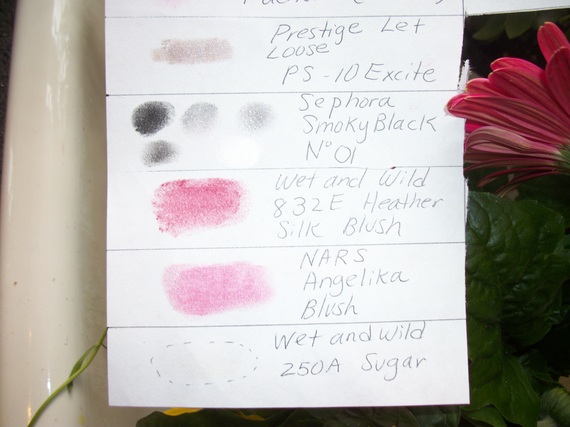 Prestige Let
Loose
PS-10 Excite
Sephora
Smoky Black
N° 01
Wet and Wild
832E Heather
Silk Blush
NARS
Angelika
Blush
Wet and Wild
250A Sugar